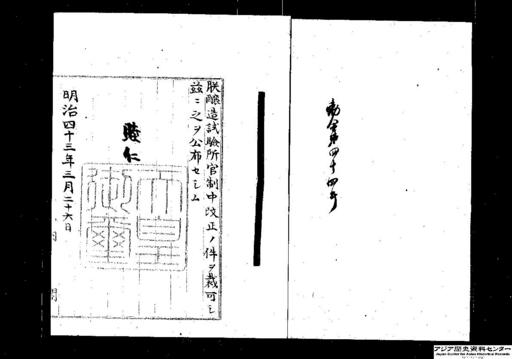 勅令第四十四号
朕醸造試験所官制中改正ノ件ヲ裁可シ
茲ニ之ヲ公布セシム
睦仁
天皇御璽
明治四十三年三月二十六日
アジア歴史資料センター
Japan Center for Asian Historical Records